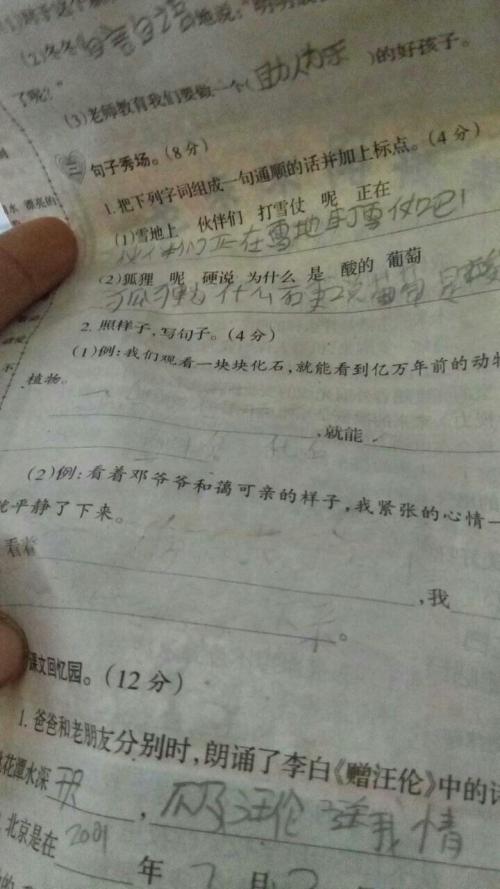 (2)冬冬自言自语地说:"明明
了呢?"
(3)老师教育我们要做一个(助人为乐)的好孩子。
三 句子秀场。(8分)
1.把下列字词组成一句通顺的话并加上标点。(4分)
(1)雪地上 伙伴们 打雪仗 呢 正在
伙伴们正在雪地打雪仗呢!
(2)狐狸 呢 硬说 为什么 是 酸的 葡萄
狐狸为什么硬说葡萄是酸
2.照样子,写句子。(4分)
(1)例:我们观看一块块化石,就能看到亿万年前的动物
植物。
,就能
(2)例:看着邓爷爷和蔼可亲的样子,我紧张的心情一
平静了下来。
看着
,我
。
课文回忆园。(12分)
1.爸爸和老朋友分别时,朗诵了李白《赠汪伦》中的诗
花潭水深 ,不及汪伦送我情
北京是在2001年7月